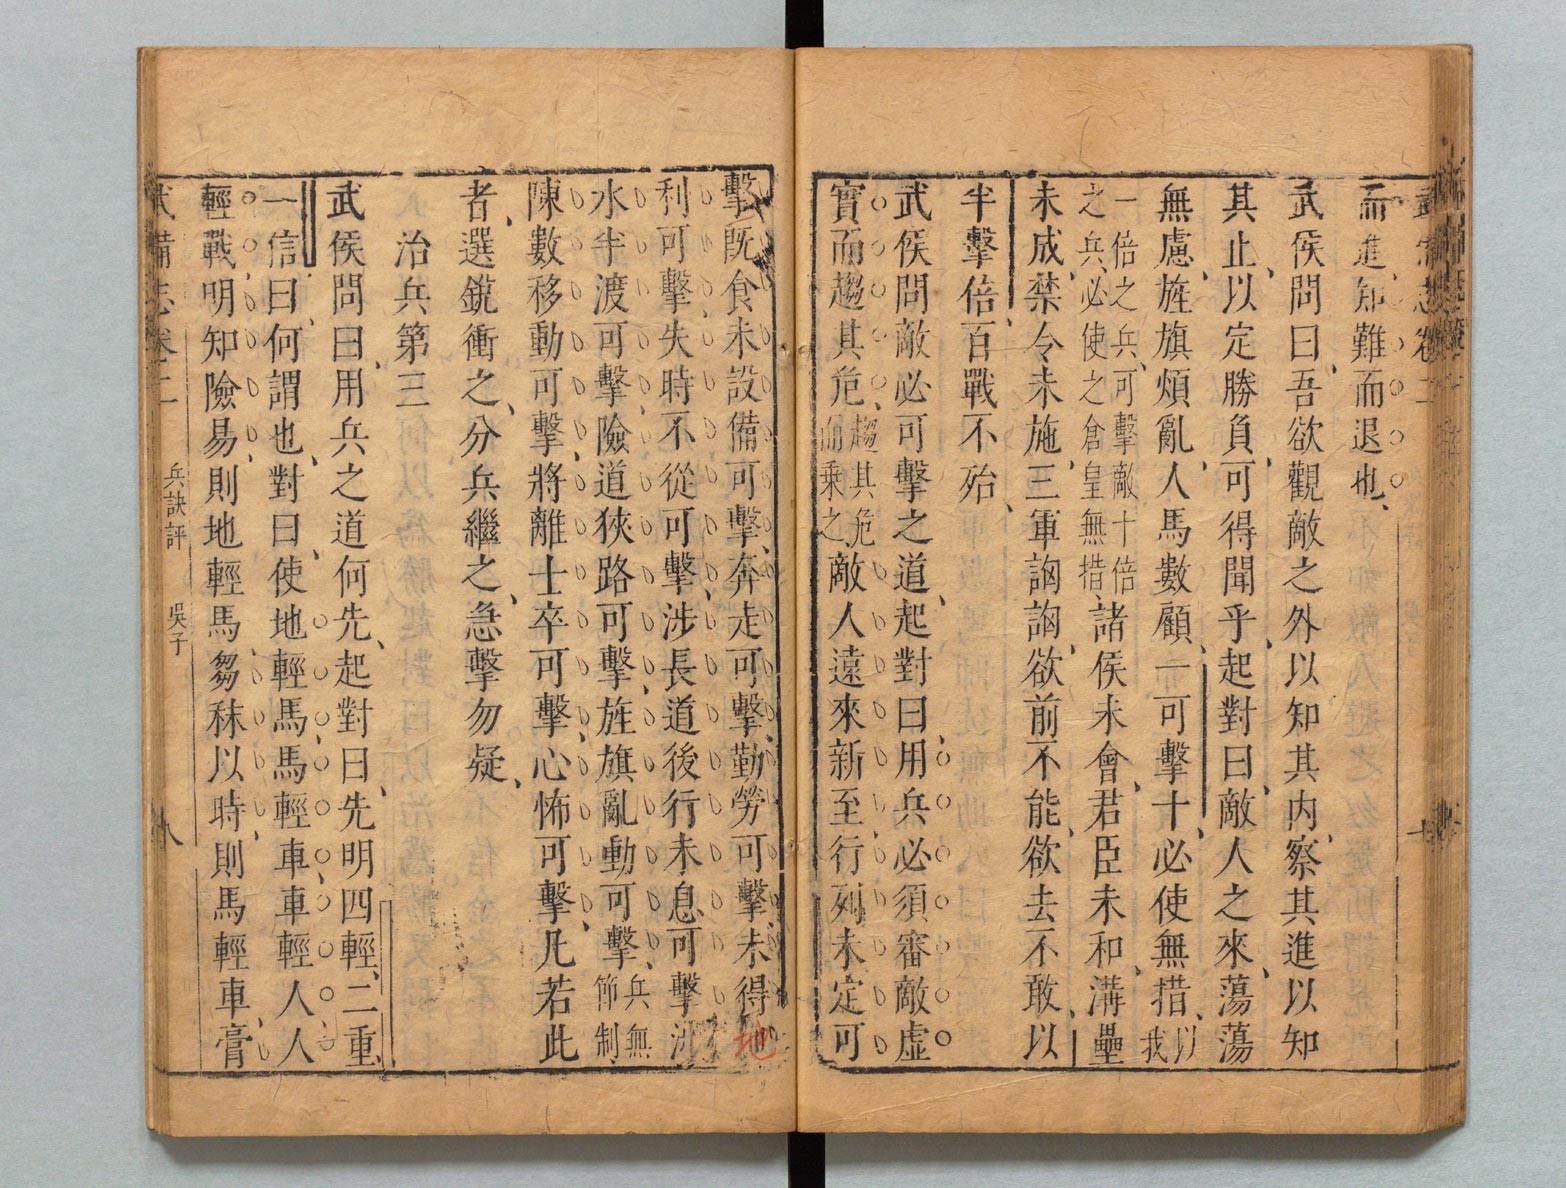 而進知難而退也、
武侯問曰、吾欲觀敵之外以知其内、察其進以知
其止、以定勝負、可得聞乎、起對曰、敵人之來、蕩蕩
無慮、旌旗煩亂、人馬數顧、一可擊十、必使無措、以我
一倍之兵、可擊敵十倍之兵、必使之倉皇無措、諸侯未會、君臣未和、溝壘
未成、禁令未施、三軍詾詾、欲前不能、欲去不敢、以
半擊倍、百戰不殆、
武侯問敵必可擊之道、起對曰、用兵必須審敵虛
實而趨其危、趨其危而乘之、敵人遠來新至、行列未定可
擊、既食未設備可擊、奔走可擊、勤勞可擊、未得地
利可擊、失時不從可擊、涉長道後行未息可擊、涉
水半渡可擊、險道狹路可擊、旌旗亂動可擊、兵無節制
陳數移動可擊、將離士卒可擊、心怖可擊、凡若此
者、選銳衝之、分兵繼之、急擊勿疑、
治兵第三
武侯問曰、用兵之道何先、起對曰、先明四輕、二重、
一信曰、何謂也、對曰、使地輕馬、馬輕車、車輕人、人
輕戰、明知險易、則地輕馬、芻秣以時、則馬輕車、膏
武備志卷二 兵訣評 吳子 八